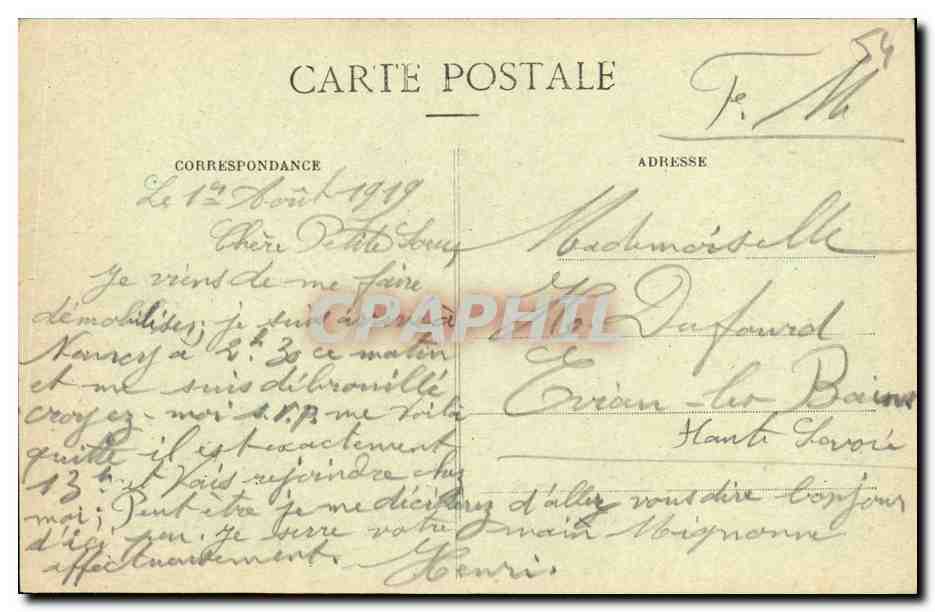 CARTE POSTALE
54
F. M
CORRESPONDANCE
ADRESSE
Le 1er Août 1919
Chère Petite Soeur
Je viens de me faire
démobiliser; je suis arrivé à
Nancy à 2h 30 ce matin
et me suis débrouillé
croyez-moi s.v.p. me voilà
quitte il est exactement
13h et vais rejoindre chez
moi; Peut être je me déciderez d'aller vous dire bonjour
d'ici peu. Je serre votre main Mignonne
affectueusement.
Henri.
Mademoiselle
Dufourd
Evian-les-Bains
Haute Savoie
CPAPHIL